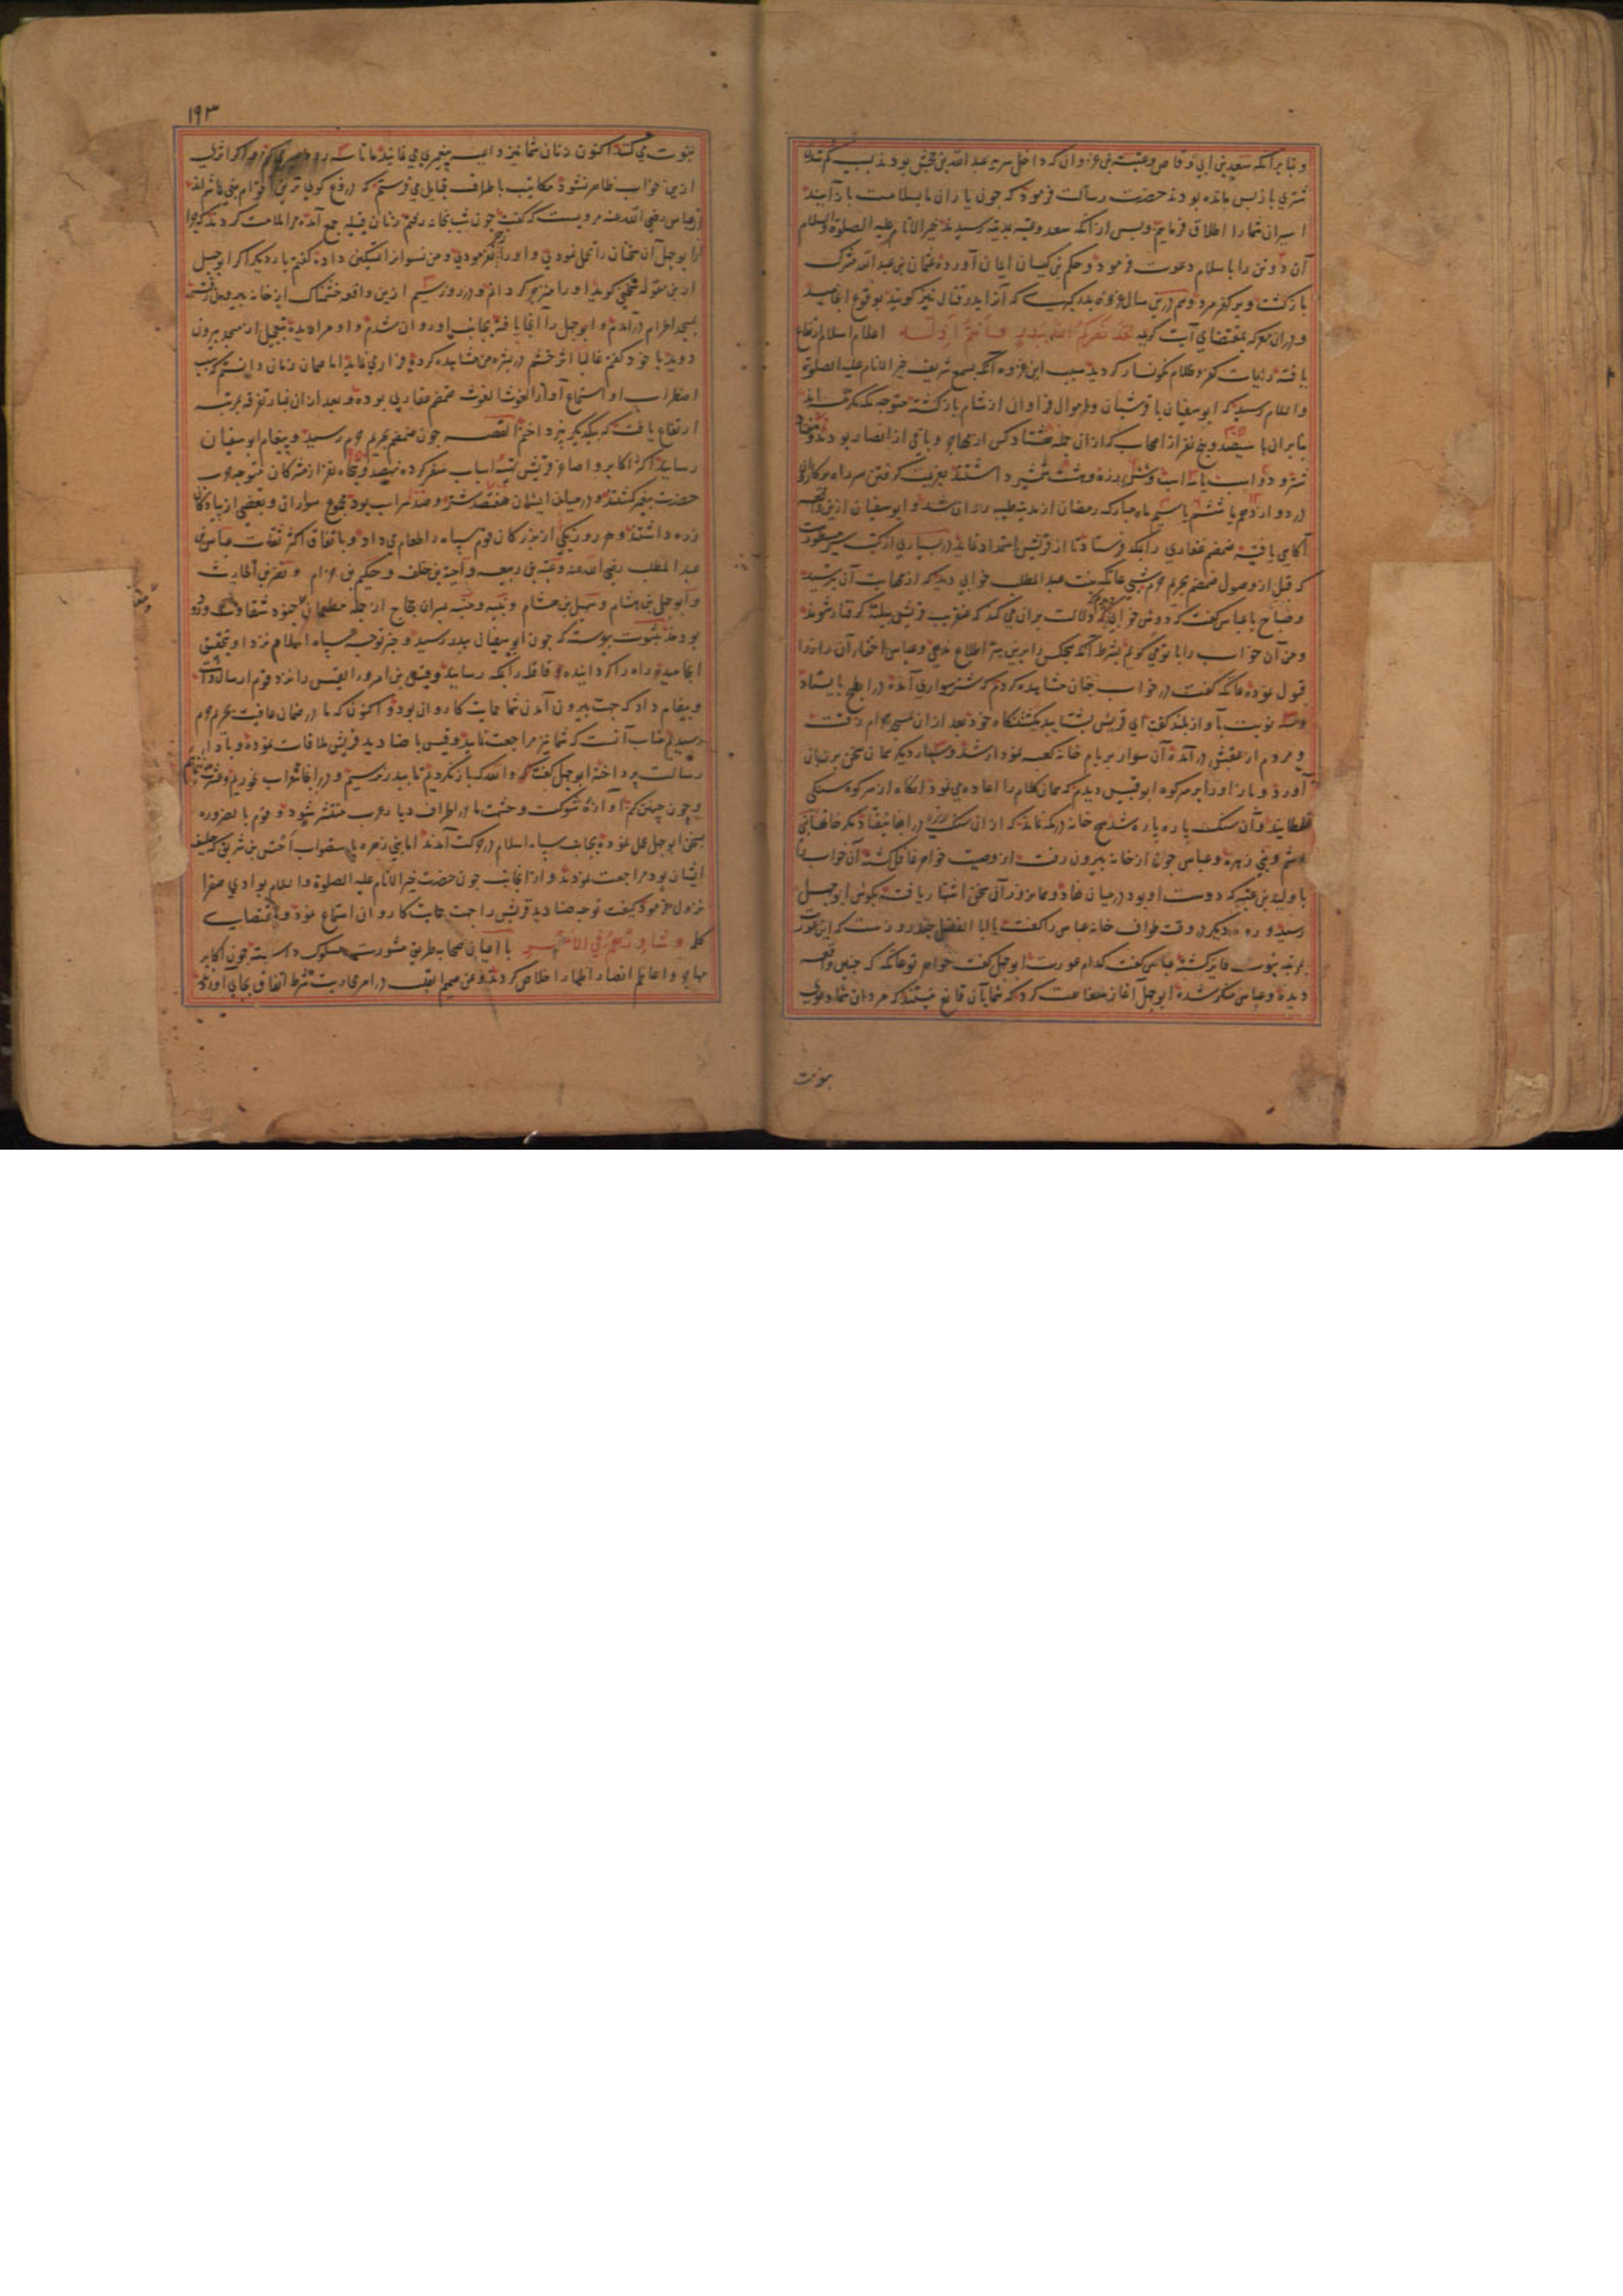 وبنابرآنکه سعد بن ابی وقاص وعتبه بن غزوان که داخل سریه عبدالله بن جحش بودند بسبب کم شدن
شتری باز پس مانده بودند حضرت رسالت فرمود که چون یاران ما بسلامت باز آیند
اسیران شما را اطلاق فرمایم وپس از آنکه سعد وعتبه بمدینه رسیدند خیر الانام علیه الصلوة والسلام
آن دو تن را باسلام دعوت فرمود وحکم بن کیسان ایمان آورده عثمان بن عبدالله مشرک
بازگشت وبر کفر مرد وهم درین سال غزوه بدر کبری که آنرا بدر قتال نیز گویند بوقوع انجامید
ودران معرکه بمقتضای آیت کریمه لقد نصرکم الله ببدر وانتم اذلة اعلام اسلام ارتفاع
یافته رایات کفر وظلام نگونسار گردید سبب این غزوه آنکه بسمع شریف خیر الانام علیه الصلوة
والسلام رسید که ابوسفیان با قرشیان واموال فراوان از شام بازگشته متوجه مکه
بنابران با سیصد وپنج نفر از اصحاب که ازان جمله هشتاد کس از مهاجر وباقی از انصار بودند
شتر ودو اسب با وشش زره وهشت شمشیر داشتند بعزیمت گرفتن سر راه
در دوازدهم یا ششم یا سیم ماه مبارک رمضان از مدینه طیبه روان شد وابوسفیان ازین واقعه
آگاهی یافته ضمضم غفاری را بمکه فرستاد تا از قریش استمداد نماید در بسیاری از کتب مسطورست
که قبل از وصول ضمضم بحریم حرم شبی عاتکه بنت عبدالمطلب خوابی دید که از مهابت آن بترسید
وصباح با عباس گفت که دوش خوابی دیده‌ام که دلالت بران میکند که عنقریب قریش ببلیه گرفتار شوند
ومن آن خواب را با تو میگویم بشرط آنکه هیچکس را برین سر اطلاع ندهی وعباس اخفاء آن راز را
قبول نموده عاتکه گفت در خواب چنان مشاهده کردم که شترسواری آمده در ابطح بایستاد
وسه نوبت بآواز بلند گفت ای قریش بشتابید بکشتنگاه خود بعد ازان بمسجد حرام رفت
ومردم از عقبش درآمده آن سوار بر بام خانه کعبه نمودار شد وسه بار دیگر همان سخن بر زبان
آورد وباز او را بر سر کوه ابوقبیس دیدم که همان کلام را اعاده می نمود آنگاه از سر کوه سنگی
غلطانید وآن سنگ پاره پاره شد هیچ خانه در مکه نماند که ازان سنگ ریزه در آنجا نیفتاد مگر خانهای بنی
هاشم وبنی زهره وعباس چون از خانه بیرون رفت از وصیت خواهر غافل گشته آن خواب را
با ولید بن عتبه که دوست او بود در میان نهاد وهمان روز آن سخن اشتهار یافته بگوش ابوجهل
رسید وروز دیگر در وقت طواف خانه عباس را گفت یا ابا الفضل چند روزست که این عورت
بمرتبه نبوت فایز گشته عباس گفت کدام عورت ابوجهل گفت خواهر تو عاتکه که چنین واقعه
دیده وعباس منکر شده ابوجهل آغاز سفاهت کرد که شما بآن قانع نیستید که مردان شما دعوی
بنوت
۱۹۳
نبوت می کنند اکنون زنان شما نیز داعیه پیغمبری می نمایند ما تا سه روز واگر اثری
ازین خواب ظاهر نشود مکاتیب باطراف قبایل می فرستیم که دروغ گوی ترین اقوام بنی هاشم اند
از عباس رضی الله عنه مرویست که گفت چون شب بخانه رفتم زنان قبیله جمع آمده مرا ملامت کردند که چرا
از ابوجهل آن سخنان را تحمل نمودی واو را زجر نفرمودی ومن نسوان را تسکین داده گفتم بار دیگر اگر ابوجهل
ازین مقوله سخن گوید او را منزجر گردانم ودر روز سیم ازین واقعه خشمناک از خانه بیرون رفتم
بمسجد الحرام درآمدم وابوجهل را آنجا یافته بجانب او روان شدم واو مرا دیده بتعجیل از مسجد بیرون
دوید با خود گفتم غالبا اثر خشم در بشره من مشاهده کرده فرار می نماید اما همان زمان دانستم که سبب
اضطراب او استماع آواز الغوث الغوث ضمضم غفاری بوده وبعد ازان غبار تفرقه بمرتبه
ارتفاع یافت که بیکدیگر نپرداختیم القصه چون ضمضم بحریم حرم رسید وپیغام ابوسفیان
رسانید اکثر اکابر واصاغر قریش تهیه اسباب سفر کرده نهصد وپنجاه نفر از مشرکان متوجه حرب
حضرت پیغمبر گشتند ودر میان ایشان هفتصد شتر وصد اسب بود مجموع سواران وبعضی از پیادگان
زره داشتند وهر روز یکی از بزرگان قوم سپاه را طعام می داد وباتفاق اکثر ثقات عباس بن
عبدالمطلب رضی الله عنه وعتبه بن ربیعه وامیه بن خلف وحکیم بن حزام ونضر بن الحارث
وابوجهل بن هشام وسهیل بن هشام ونبیه ومنبه پسران حجاج از جمله مطعمان جنود شقاوت ورود
بودند بثبوت پیوسته که چون ابوسفیان ببدر رسید وخبر توجه سپاه اسلام نزد او بتحقیق
انجامید راه را گردانیده قافله را بمکه رسانید وقیس بن امرء القیس را نزد قوم ارسال داشت
وپیغام داد که جهت بیرون آمدن شما حمایت کاروان بود واکنون که ما در ضمان عافیت بحریم حرم
رسیدیم مناسب آنست که شما نیز مراجعت نمایید وقیس با صنادید قریش ملاقات نموده وبادای
رسالت پرداخته ابوجهل گفت که والله که باز نگردیم تا ببدر نرسیم ودر آنجا شراب نخوریم
وچون چنین کنیم آوازه شوکت وحشمت ما در اطراف دیار عرب منتشر شود وقوم بالضروره
بسخن ابوجهل عمل نموده بجانب سپاه اسلام در حرکت آمدند اما بنی زهره باستصواب اخنس بن شریق که حلیف
ایشان بود مراجعت نمودند واز آنجانب چون حضرت خیر الانام علیه الصلوة والسلام بوادی صفرا
نزول فرمود کیفیت توجه صنادید قریش را جهت حمایت کاروان استماع نمود وبمقتضای
کلمه وشاورهم فی الامر با اعیان صحابه طریق مشورت مسلوک داشته چون اکابر
مهاجر واعاظم انصار اظهار اخلاص کردند وعن صمیم القلب در امر محاربت شرط اتفاق بجای آوردند